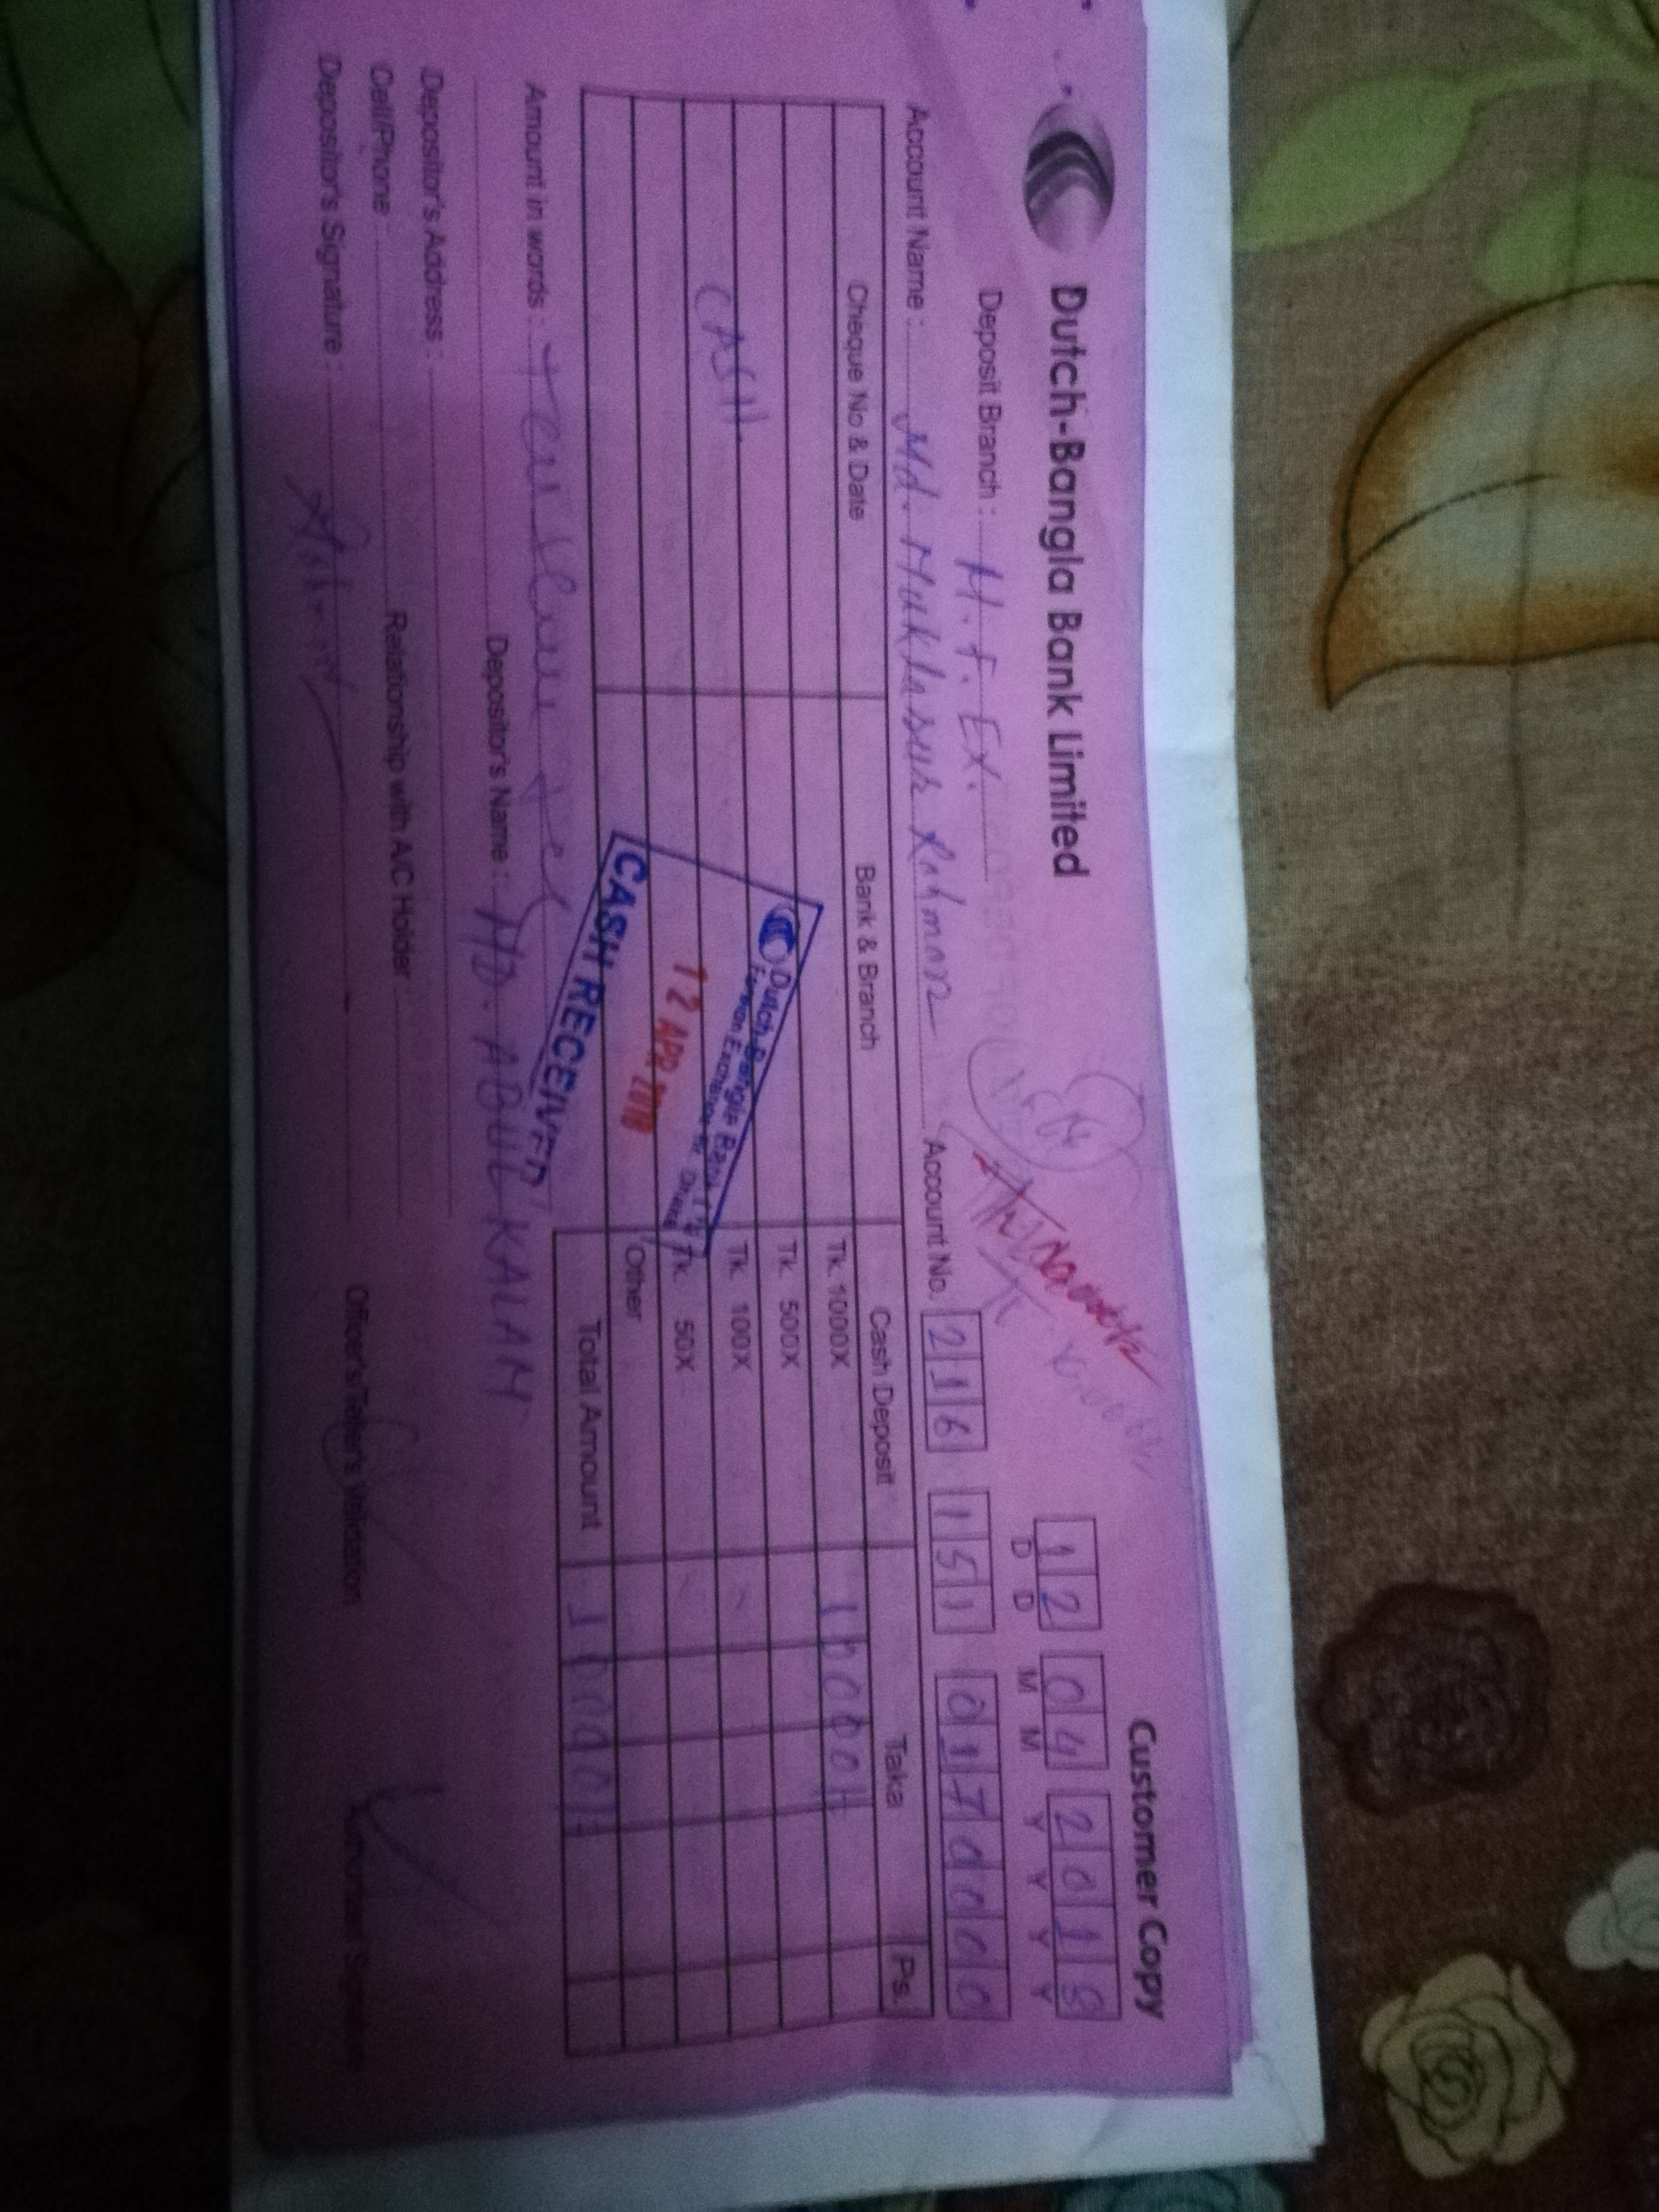 Customer Copy
Dutch-Bangla Bank Limited
12 04 2018
D D M M Y Y Y Y
Deposit Branch : M.F.EX.
Account Name : Md. Muklasur Rahman Account No. 216 151 0170000
Cheque No & Date Bank & Branch Cash Deposit Taka Ps.
Tk. 1000X 10000/=
Tk. 500X
CASH. Tk. 100X
Tk. 50X
Other
Total Amount 10000/=
Dutch-Bangla Bank
Foreign Exchange Br. Dhaka
12 APR 2018
CASH RECEIVED
Amount in words :
Depositor's Name : MD. ABUL KALAM
Depositor's Address :
Cell/Phone : Relationship with A/C Holder :
Depositor's Signature : Officer's/Teller's Initial